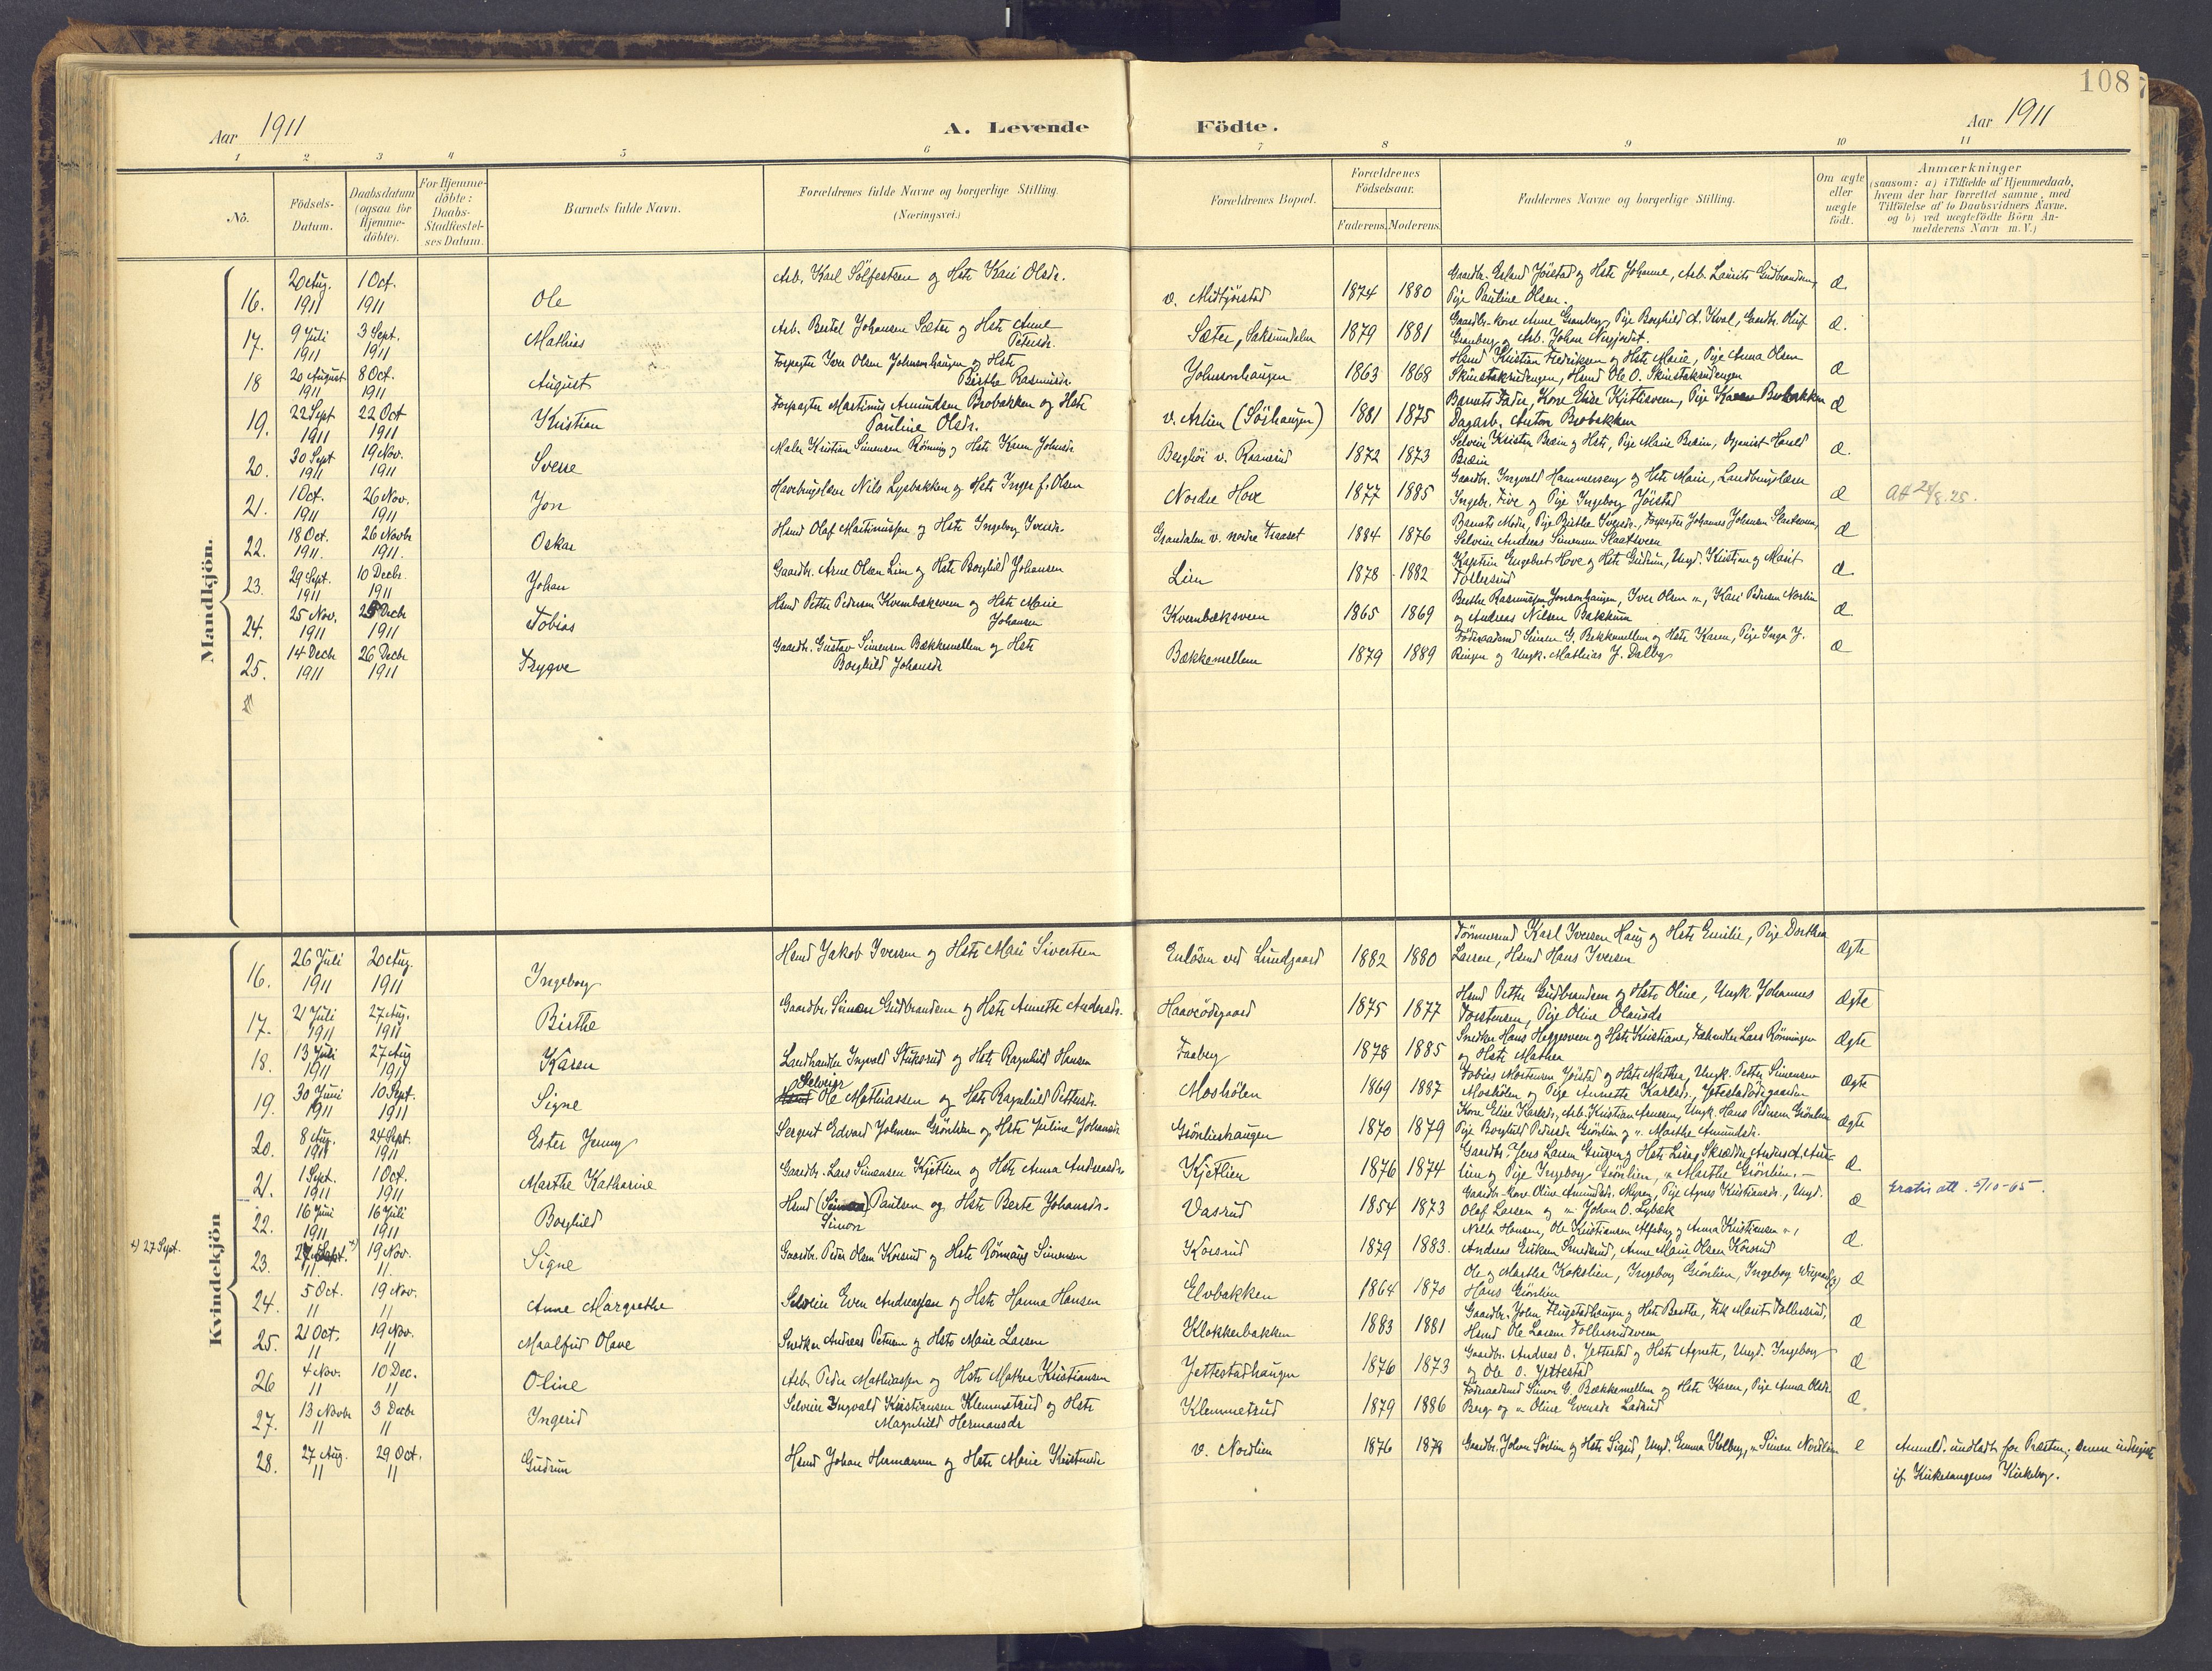 108
Aar 1911
A. Levende Födte.
Aar 1911
1 2 3 4 5 6 7 8 9 10 11
No.
Födsels-
Datum.
Daabsdatum
(ogsaa for
Hjemme-
döbte).
For Hjemme-
döbte:
Daabs-
Stadfæstel-
ses Datum.
Barnets fulde Navn.
Forældrenes fulde Navne og borgerlige Stilling.
(Næringsvei.)
Forældrenes Bopæl.
Forældrenes
Födselsaar.
Faderens. Moderens.
Faddernes Navne og borgerlige Stilling.
Om ægte
eller
uægte
födt.
Anmærkninger
(saasom: a) i Tilfælde af Hjemmedaab,
hvem der har forrettet samme, med
Tilföielse af to Daabsvidners Navne.
og b) ved uægtefödte Börn An-
melderens Navn m. V.)
Mandkjön.
16. 20 Aug. 1911 1 Oct. 1911 Ole Arb. Karl Sölfestsen og Hstr Kari Olsdr. v. Midtjöistad 1874 1880 Gaardbr. Erland Jöistad og Hstr Johanne, Arb. Laurits Gudbrandsen,
Pige Pauline Olsen. æ.
17. 9 Juli 1911 3 Sept. 1911 Mathias Arb. Bertel Johansen Sæter og Hstr Anne
Petersdr. Sæter, Saksumdalen 1879 1881 Gaardbr. kone Anne Granberg, Pige Borghild A. Kval, Gaardbr. Oluf
Granberg og Arb. Johan Nyjordet. æ.
18 20 August 1911 8 Oct. 1911 August Forpagter Iver Olsen Johnsenhaugen og Hstr
Birthe Rasmusdr. Johnsenhaugen 1863 1868 Hsmd Kristian Fredriksen og Hstr Marie, Pige Anna Olsen
Skinstakrudengen, Hsmd Ole O. Skinstakrudengen æ
19. 22 Sept 1911 22 Oct 1911 Kristian Forpagter Martinus Amundsen Brobakken og Hstr
Pauline Olsdr. v. Arlien (Söihaugen) 1881 1875 Barnets Fader, Kone Elise Kjetlisveen, Pige Karen Brobakken
Dagarb. Anton Brobakken æ
20. 30 Sept 1911 19 Nov. 1911 Sverre Maler Kristian Simensen Rönning og Hstr Karen Johnsdr Berghöi v. Raanerud 1872 1873 Selveier Kristen Bræin og Hstr, Pige Marie Bræin, Organist Harald
Bræin æ.
21. 1 Oct. 1911 26 Nov. 1911 Jon Havebrugslærer Nils Lysbakken og Hstr Inger f. Olsen Nordre Hove 1877 1885 Gaardbr. Ingvald Hammerseng og Hstr Marie, Landbrugslærer
Ingebr. Five og Pige Ingeborg Jöistad æ att 24/8.25.
22. 18 Oct. 1911. 26 Novbr 1911. Oskar Hsmd Olaf Martinussen og Hstr Ingeborg Iversdr. Grandalen v. nordre Traaset 1884 1876 Barnets Moder, Pige Birthe Iversdr., Forpagter Johannes Johansen Slaatsveen,
Selveier Andreas Simensen Slaatsveen æ
23. 29 Sept. 1911 10 Decbr. 1911 Johan Gaardbr. Arne Olsen Lien og Hstr Borghild Johansen Lien 1878 1882 Kaptein Engebret Hove og Hstr Gudrun, Ungd. Kristian og Marit
Tollersrud æ
24. 25 Nov. 1911 25 Decbr 1911 Tobias Hsmd Petter Pedersen Kvernbæksveen og Hstr Marie
Johansen Kvernbæksveen 1865 1869 Berthe Rasmussen Jonsonhaugen, Iver Olsen "", Kari Pedersen Norlien
og Andreas Nilsen Bakkum æ
25. 14 Decbr 1911 26 Decbr 1911 Trygve Gaardbr. Gustav Simensen Bækkemellem og Hstr
Borghild Johansdr Bækkemellem 1879 1889 Föderaadsmd Simen G. Bækkemellem og Hstr Karen, Pige Inga J.
Ringen og Ungk. Mathias J. Dalby æ
Kvindekjön
16. 26 Juli 1911 20 Aug. 1911 Ingeborg Hsmd Jakob Iversen og Hstr Mari Sivertsen Enlösen ved Lundgaard 1882 1880 Tömmermd Karl Iversen Haug og Hstr Emilie, Pige Dorthea
Larsen, Hsmd Hans Iversen Ægte
17. 21 Juli 1911 27 Aug. 1911 Birthe Gaardbr. Simen Gudbrandsen og Hstr Annette Andersdr. Haaveödegaard 1875 1877 Hsmd Petter Gudbrandsen og Hstr Oline, Ungk. Johannes
Torstensen, Pige Oline Olausdr Ægte
18. 13 Juli 1911 27 Aug 1911 Karen Landhandler Ingvald Stuksrud og Hstr Ragnhild Hansen Faaberg 1878 1885 Snedker Hans Heggesveen og Hstr Kristiane, Fæhandler Lars Rönningen
og Hstr Mathea Ægte
19. 30 Juni 1911 10 Sept. 1911 Signe Selveier Ole Mathiassen og Hstr Ragnhild Pettersdr. Moshölen 1869 1887 Tobias Mortensen Jöistad og Hstr Mathea, Ungk. Petter Simensen
Moshölen og Pige Annette Karlsdr. Jetestadödegaarden Ægte
20. 8 Aug. 1911 24 Sept. 1911 Ester Jenny Sergent Edvard Johnsen Grönlien og Hstr Juline Johansdr Grönlieshaugen 1870 1879 Kone Elise Karlsdr., Arb. Kristian Arnesen, Ungk. Hans Pedersen Grönlien
Pige Borghild Pedersdr Grönlien og ". Marthe Amundsdr. Ægte
21. 1 Sept. 1911 1 Oct. 1911 Marthe Katharine Gaardbr. Lars Simensen Kjetlien og Hstr Anna Andreasdr Kjetlien 1876 1874 Gaardbr. Jens Larsen Gringen og Hstr Lisa, Skrædder Anders A. Aur-
lien og Pige Ingeborg Grönlien, " Marthe Grönlien. æ
22. 16 Juni 1911 16 Juli 1911 Borghild Hsmd (Simen) Paulsen og Hstr Berte Johansdr.
Simon Vasrud 1854 1873 Gaardbr. kone Oline Amundsdr. Myren, Pige Agnes Kristiansdr., Ungd.
Olaf Larsen og " Johan O. Lybæk æ Gratis att. 5/10-65.
+) 27 Sept.
23. 27 Sept. +) 11. 19 Nov. 11. Signe Gaardbr. Peter Olsen Korsrud og Hstr Rönnaug Simensen Korsrud 1879 1883. Nella Hansen, Ole Kristiansen Alfsby og Anna Kristiansen ",
Andreas Eriksen Smedsrud, Anne Marie Olsen Korsrud æ.
24. 5 Oct. 11 19 Nov. 11 Anne Margrethe Selveier Even Andreassen og Hstr Hanna Hansen Elvbakken 1864 1870 Ole og Marthe Kokslien, Ingeborg Grönlien, Ingeborg
Hans Grönlien æ
25. 21 Oct. 11 19 Nov. 11 Maalfrid Olave Snedker Andreas Petersen og Hstr Marie Larsen Klokkerbakken 1883 1881 Gaardbr. John Flugstadhaugen og Hstr Berthe, Frk Marit Tollersrud,
Hsmd Ole Larsen Tollersrudsveen æ
26 4 Nov. 11 10 Dec. 11 Oline Arb. Peder Mathiassen og Hstr Mathea Kristiansen Jettestadhaugen 1876 1873 Gaardbr. Andreas O. Jettestad og Hstr Agnete, Ungd. Ingeborg
og Ole O. Jettestad æ
27. 13 Novbr 11 3 Decbr 11 Ingerid Selveier Ingvald Kristiansen Klemmetsrud og Hstr
Magnhild Hermansdr Klemmetsrud 1879 1886 Föderaadsmd Simon G. Bækkemellem og Hstr Karen, Pige Anna Olsdr.
Berg og " Oline Evensdr Ladsrud æ.
28. 27 Aug. 11 29 Oct. 11 Gudrun Hsmd Johan Hermansen og Hstr Marie Kristiansdr v. Nordlien 1876 1878 Gaardbr. Johan Sörlien og Hstr Sigrid, Ungd. Emma Kolberg, " Simen Nordlien e Anmeld. undladt for Præsten; senere indregistr.
if. Kirkesangerens Kirkebog.